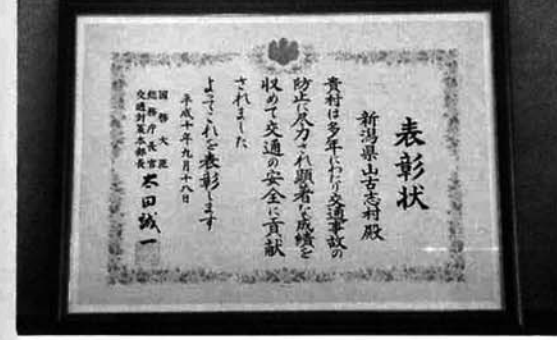 表彰状
新潟県山古志村殿
貴村は多年にわたり交通事故の
防止に尽力され顕著な成績を
収めて交通の安全に貢献
されました
よってこれを表彰します
平成十年九月十八日
国務大臣
総務庁長官
交通対策本部長
太田誠一